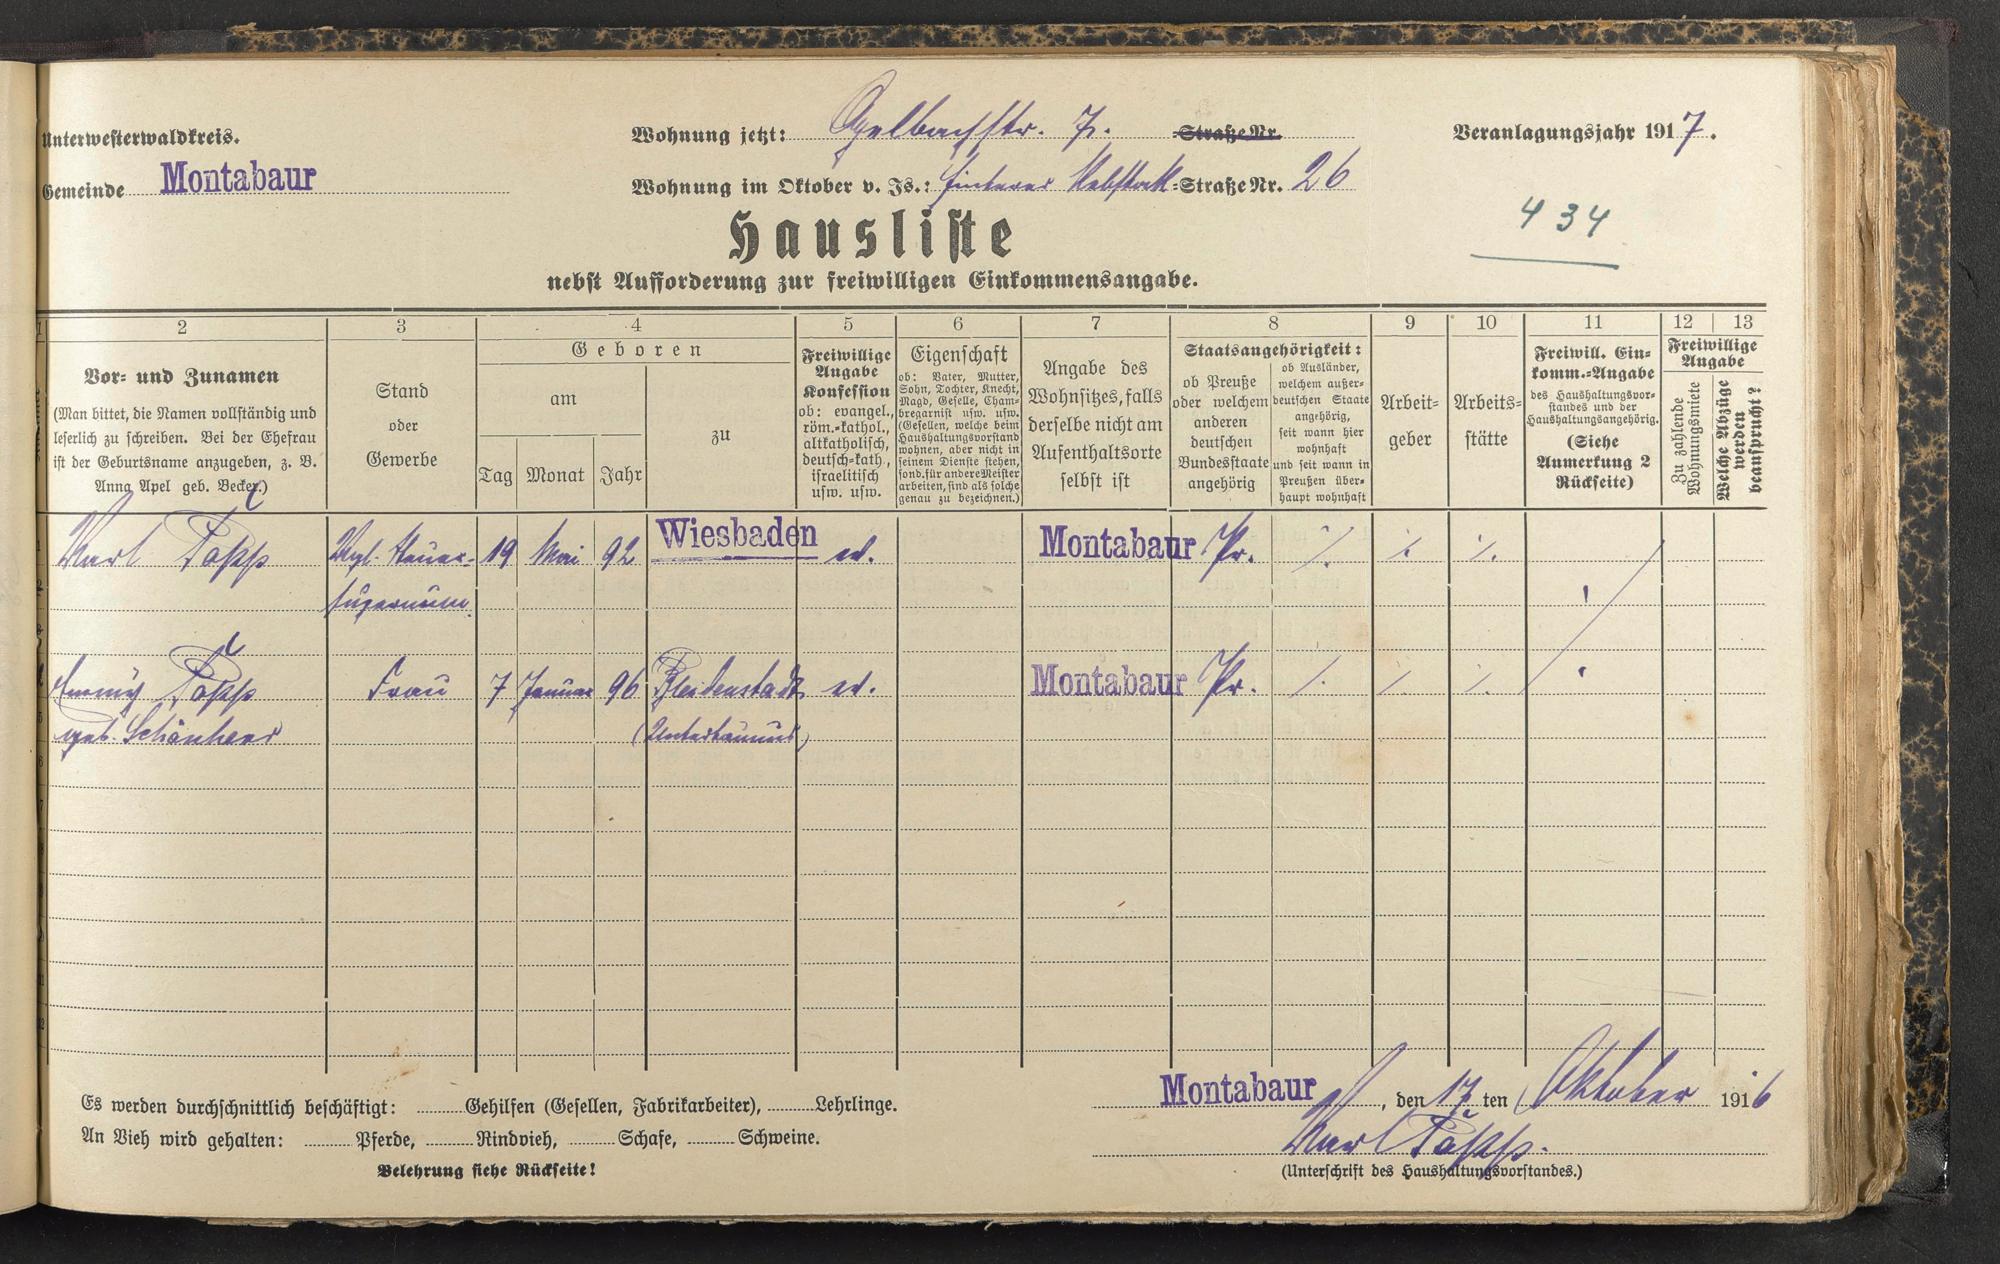 Unterwesterwaldkreis.
Gemeinde Montabaur
Wohnung jetzt: Gelbachstr. 7. Straße Nr.
Wohnung im Oktober v. Js.: Hinterer Rebstock-Straße Nr. 26
Veranlagungsjahr 1917.
434
Hausliste
nebst Aufforderung zur freiwilligen Einkommensangabe.
1 2 3 4 5 6 7 8 9 10 11 12 13
Vor- und Zunamen
(Man bittet, die Namen vollständig und
leserlich zu schreiben. Bei der Ehefrau
ist der Geburtsname anzugeben, z. B.
Anna Apel geb. Becker.)
Stand
oder
Gewerbe
Geboren
am
zu
Tag Monat Jahr
Freiwillige
Angabe
Konfession
ob: evangel.,
röm.-kathol.,
altkatholisch,
deutsch-kath.,
israelitisch
usw. usw.
Eigenschaft
ob: Vater, Mutter,
Sohn, Tochter, Knecht,
Magd, Geselle, Cham-
bregarnist usw. usw.
(Gesellen, welche beim
Haushaltungsvorstand
wohnen, aber nicht in
seinem Dienste stehen,
sond. für andere Meister
arbeiten, sind als solche
genau zu bezeichnen.)
Angabe des
Wohnsitzes, falls
derselbe nicht am
Aufenthaltsorte
selbst ist
Staatsangehörigkeit:
ob Preuße
oder welchem
anderen
deutschen
Bundesstaate
angehörig
ob Ausländer,
welchem außer-
deutschen Staate
angehörig,
seit wann hier
wohnhaft
und seit wann in
Preußen über-
haupt wohnhaft
Arbeit-
geber
Arbeits-
stätte
Freiwill. Ein-
komm.-Angabe
des Haushaltungsvor-
standes und der
Haushaltungsangehörig.
(Siehe
Anmerkung 2
Rückseite)
Freiwillige
Angabe
Zu zahlende
Wohnungsmiete
Welche Abzüge
werden
beansprucht?
Karl Popp Kgl. Steuer- 19 Mai 92 Wiesbaden ev. Montabaur Pr. ./. ./. ./.
supernum.
Popp Frau 7 Januar 96 Bleidenstadt ev. Montabaur Pr. ./. ./. ./.
geb. Schönherr (Untertaunus)
Es werden durchschnittlich beschäftigt: Gehilfen (Gesellen, Fabrikarbeiter), Lehrlinge.
An Vieh wird gehalten: Pferde, Rindvieh, Schafe, Schweine.
Belehrung siehe Rückseite!
Montabaur, den 17 ten Oktober 1916
Karl Popp.
(Unterschrift des Haushaltungsvorstandes.)